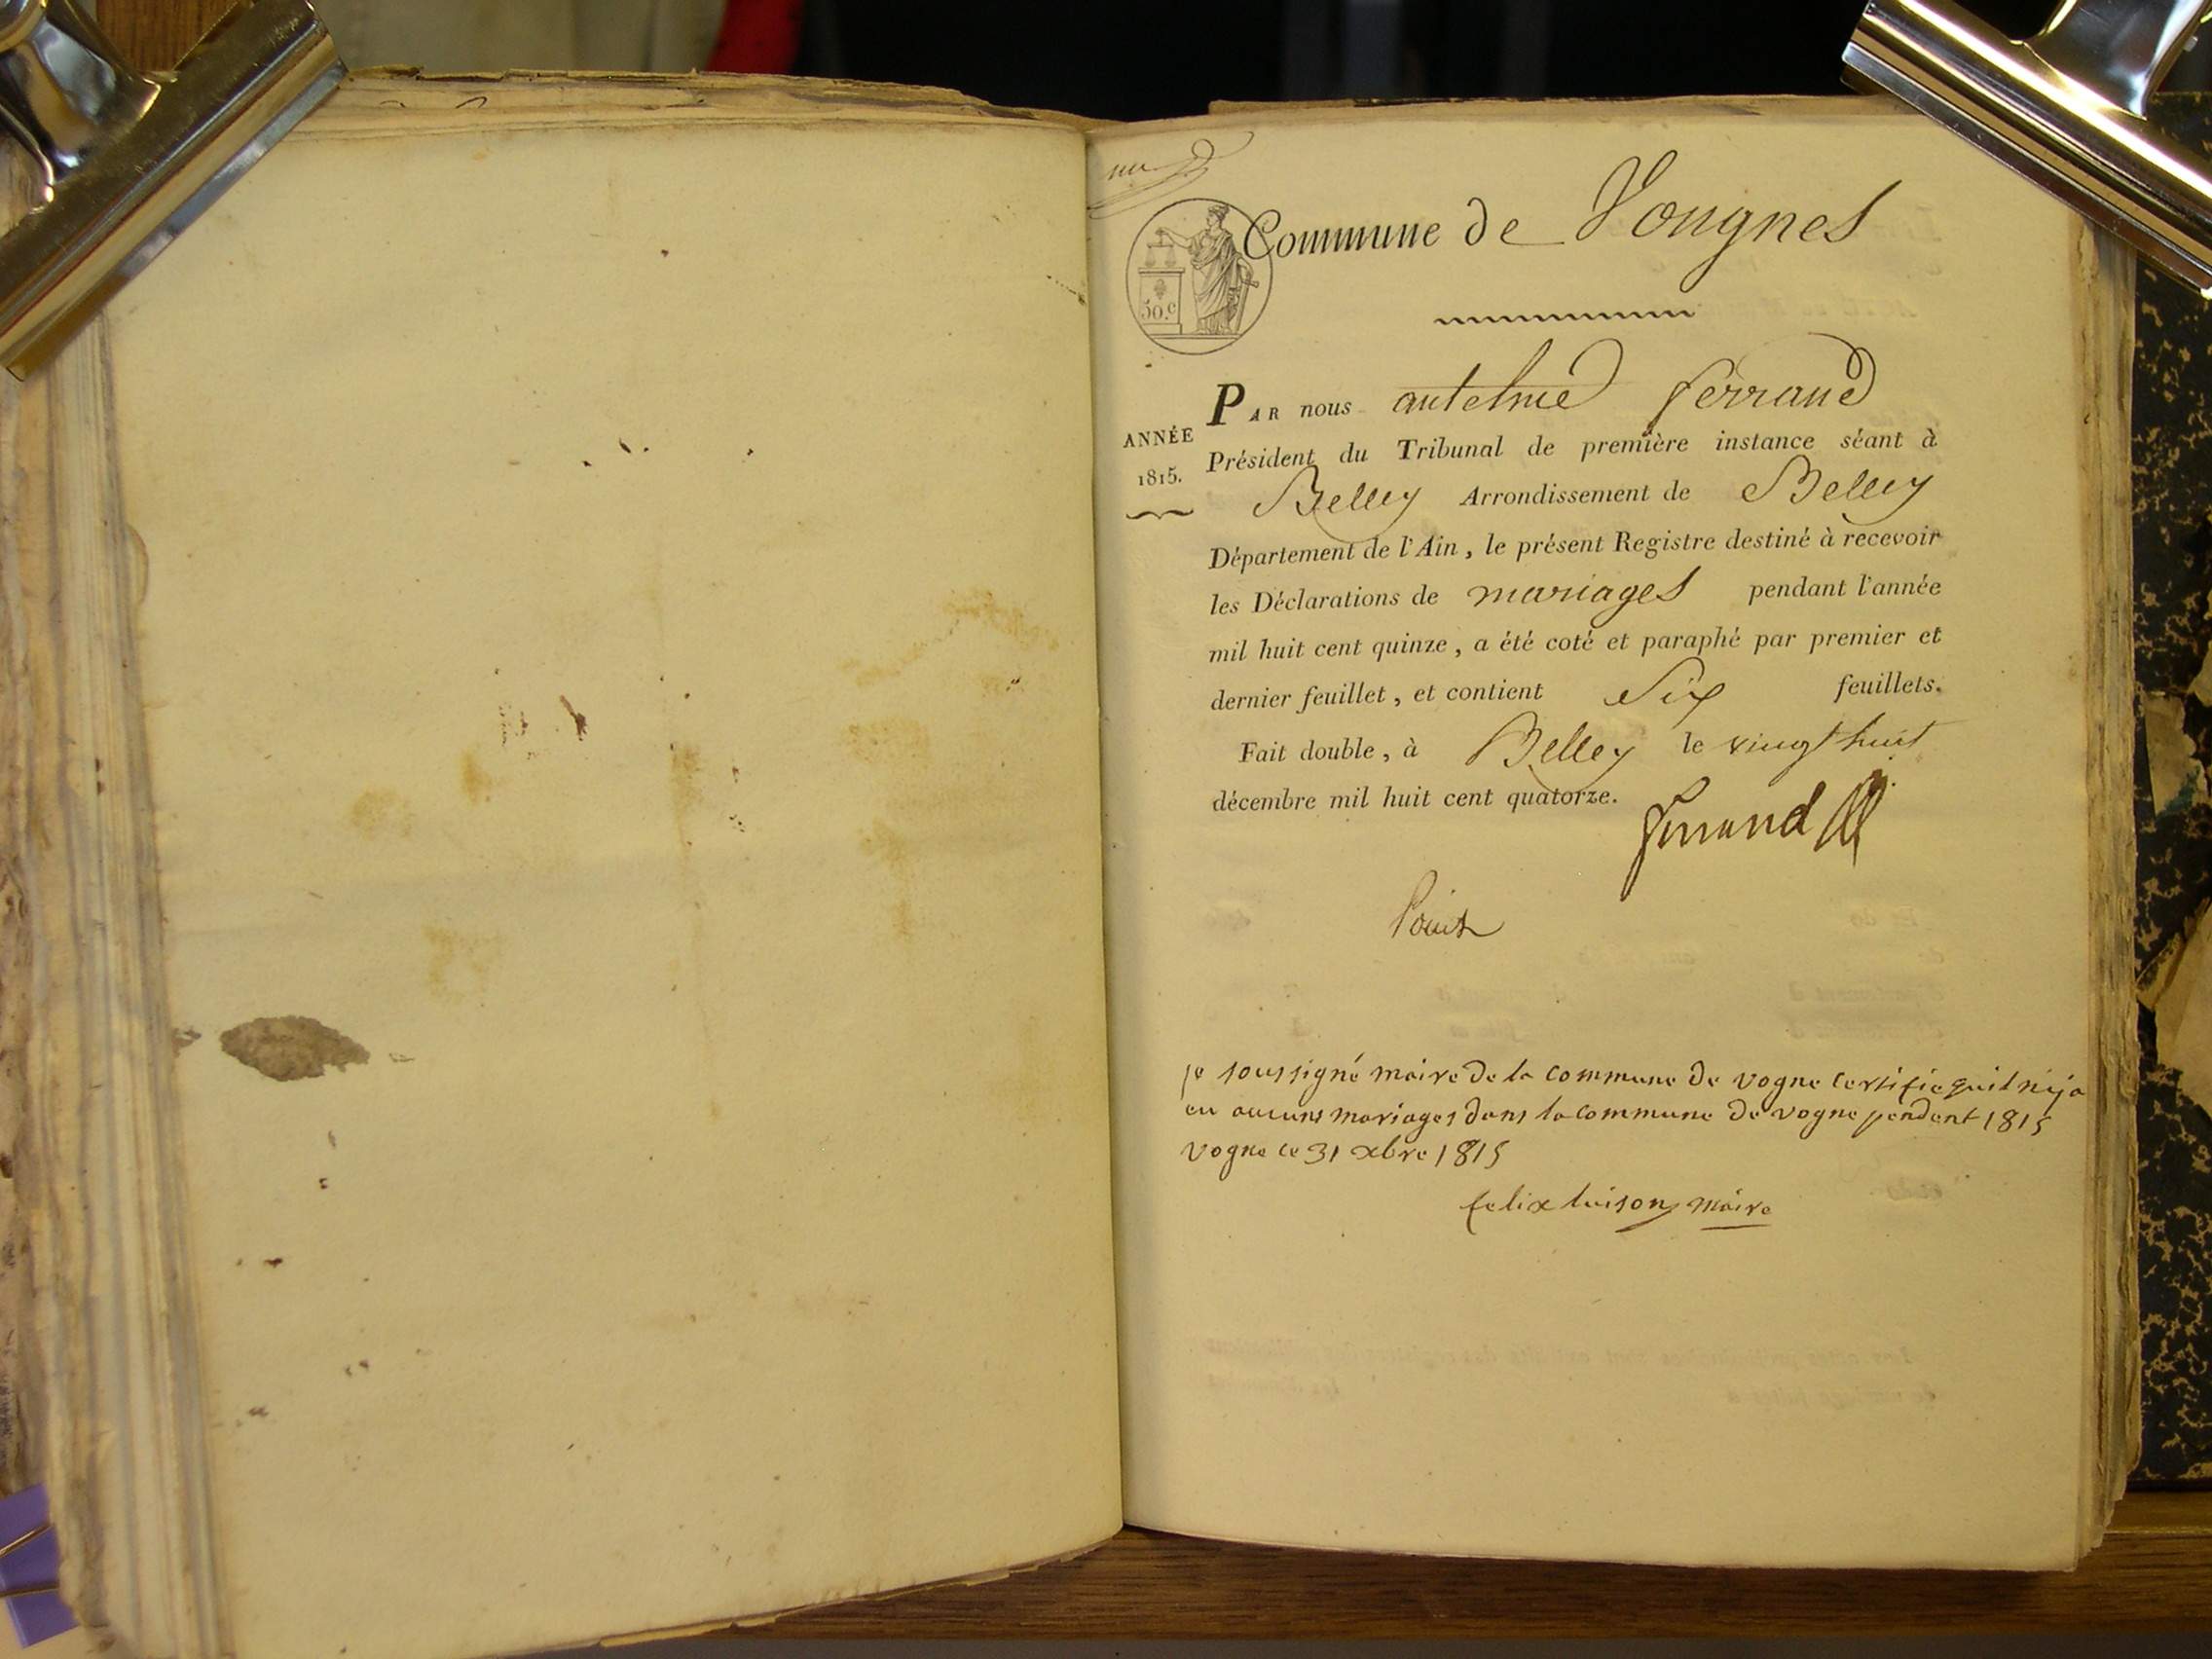 Commune de Vougnes
50.c
PAR nous antelme ferrand
ANNÉE
1815.
Président du Tribunal de première instance séant à
Belley Arrondissement de Belley
Département de l'Ain, le présent Registre destiné à recevoir
les Déclarations de mariages pendant l'année
mil huit cent quinze, a été coté et paraphé par premier et
dernier feuillet, et contient Six feuillets.
Fait double, à Belley le vingt huit
décembre mil huit cent quatorze.
ferrand
je soussigné maire de la commune de vogne certifie quil nija
eu aucuns mariages dans la commune de vogne pendent 1815
vogne ce 31 xbre 1815
felix luison maire